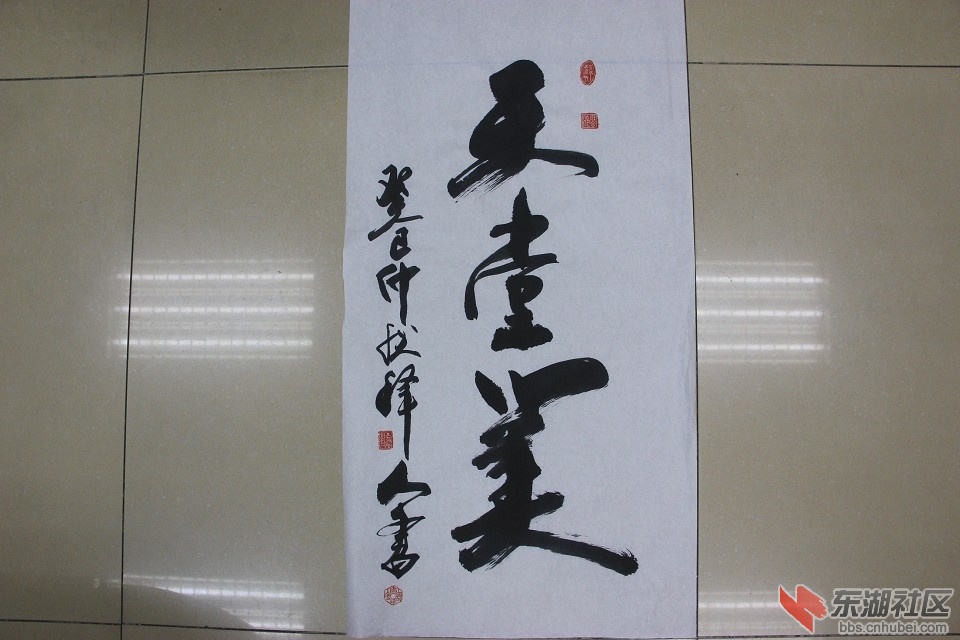 天堂美
癸巳仲秋祥
人书
东湖社区
bbs.cnhubei.com